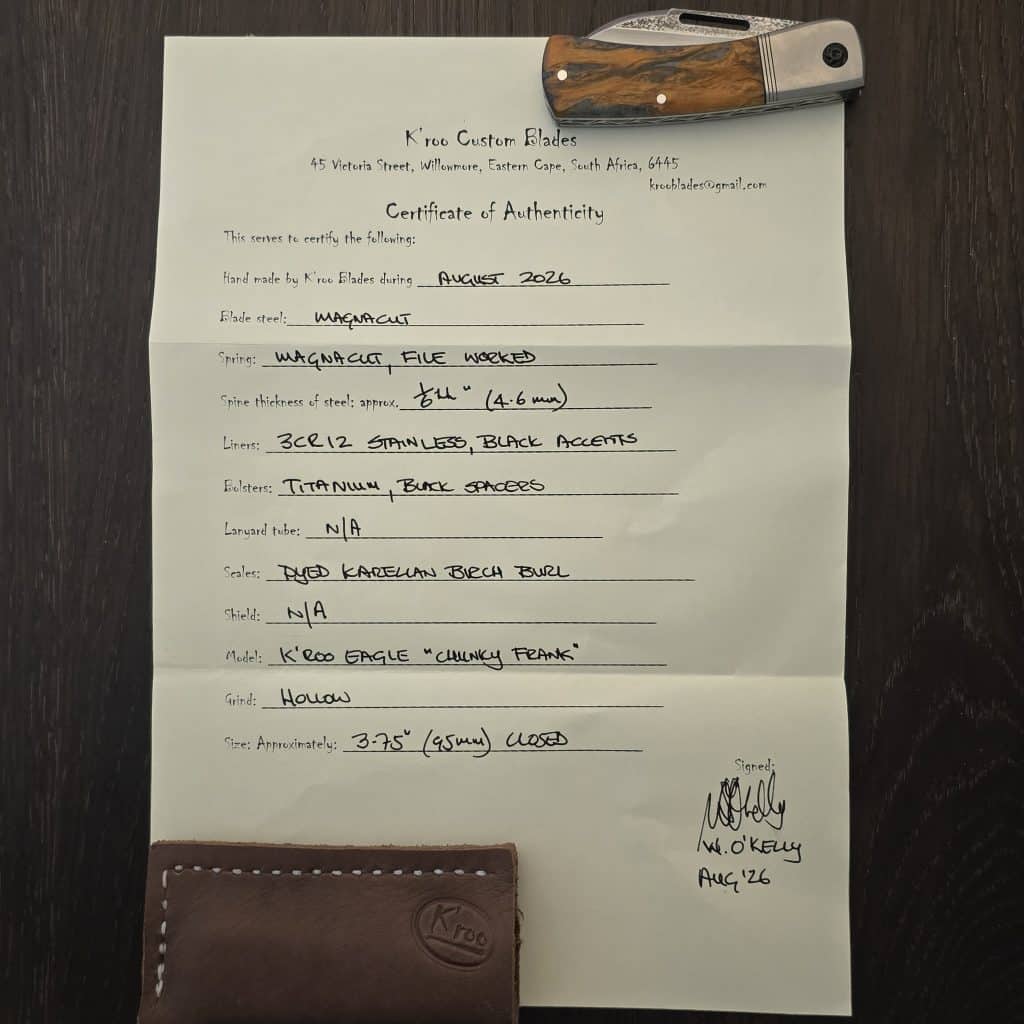 K'roo Custom Blades
45 Victoria Street, Willowmore, Eastern Cape, South Africa, 6445
krooblades@gmail.com
Certificate of Authenticity
This serves to certify the following:
Hand made by K'roo Blades during AUGUST 2026
Blade steel: MAGNACUT
Spring: MAGNACUT, FILE WORKED
Spine thickness of steel: approx. 1/6th" (4.6mm)
Liners: 3CR12 STAINLESS, BLACK ACCENTS
Bolsters: TITANIUM, BLACK SPACERS
Lanyard tube: N/A
Scales: DYED KARELIAN BIRCH BURL
Shield: N/A
Model: K'ROO EAGLE "CHUNKY FRANK"
Grind: HOLLOW
Size: Approximately: 3.75" (95mm) CLOSED
Signed:
W. O'KELLY
AUG '26
K'roo